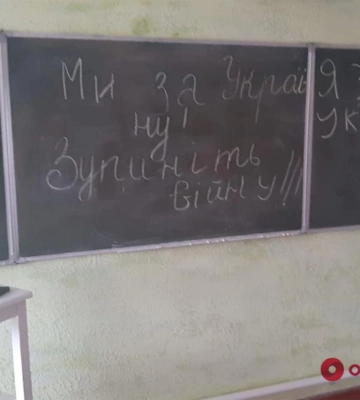 Ми за Украї
ну!
Зупиніть
війну!!!
Я
УК